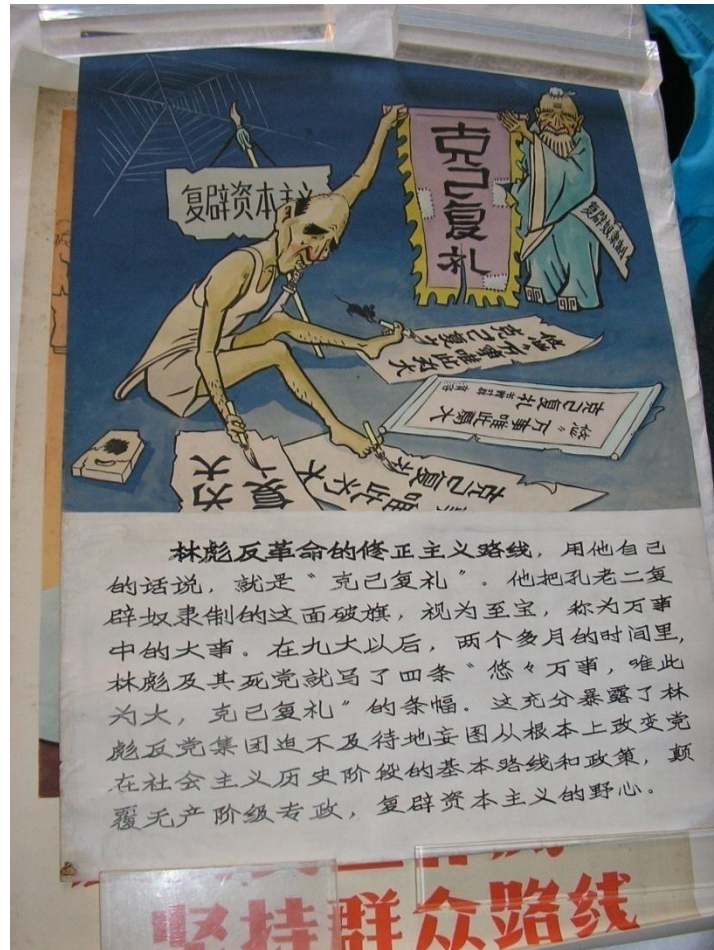 复辟资本主义
克己复礼
复辟奴隶制
悠"万事唯此为大
克己复礼
悠"万事唯此为大
克己复礼
唯此为大
克己复礼
林彪反革命的修正主义路线，用他自己
的话说，就是"克己复礼"。他把孔老二复
辟奴隶制的这面破旗，视为至宝，称为万事
中的大事。在九大以后，两个多月的时间里，
林彪及其死党就写了四条"悠々万事，唯此
为大，克己复礼"的条幅。这充分暴露了林
彪反党集团迫不及待地妄图从根本上改变党
在社会主义历史阶段的基本路线和政策，颠
覆无产阶级专政，复辟资本主义的野心。
坚持群众路线